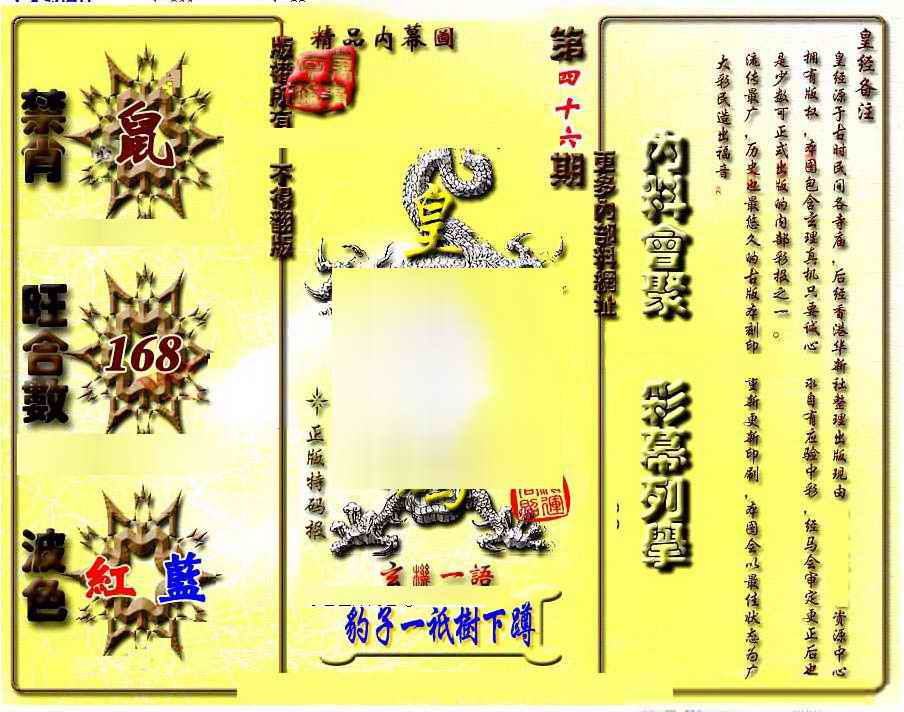 精品内幕圖
第四十六期
禁肖
鼠
旺合數
168
波色
紅 藍
版權所有
不得翻版
更多內部料網址
皇
正版特码报
玄機一語
豹子一祇樹下蹲
內料會聚
彩幕列舉
皇经备注
皇经源于古时民间各寺庙，后经香港华新社整理出版现由
资源中心
拥有版权，本图包含玄理真机只要诚心
求自有应验中彩，经马会审定更正后也
是少数可正式出版的内部彩报之一。
流传最广，历史也最悠久的古版本刻印
重新更新印刷，本图会以最佳状态为广
大彩民造出福音。